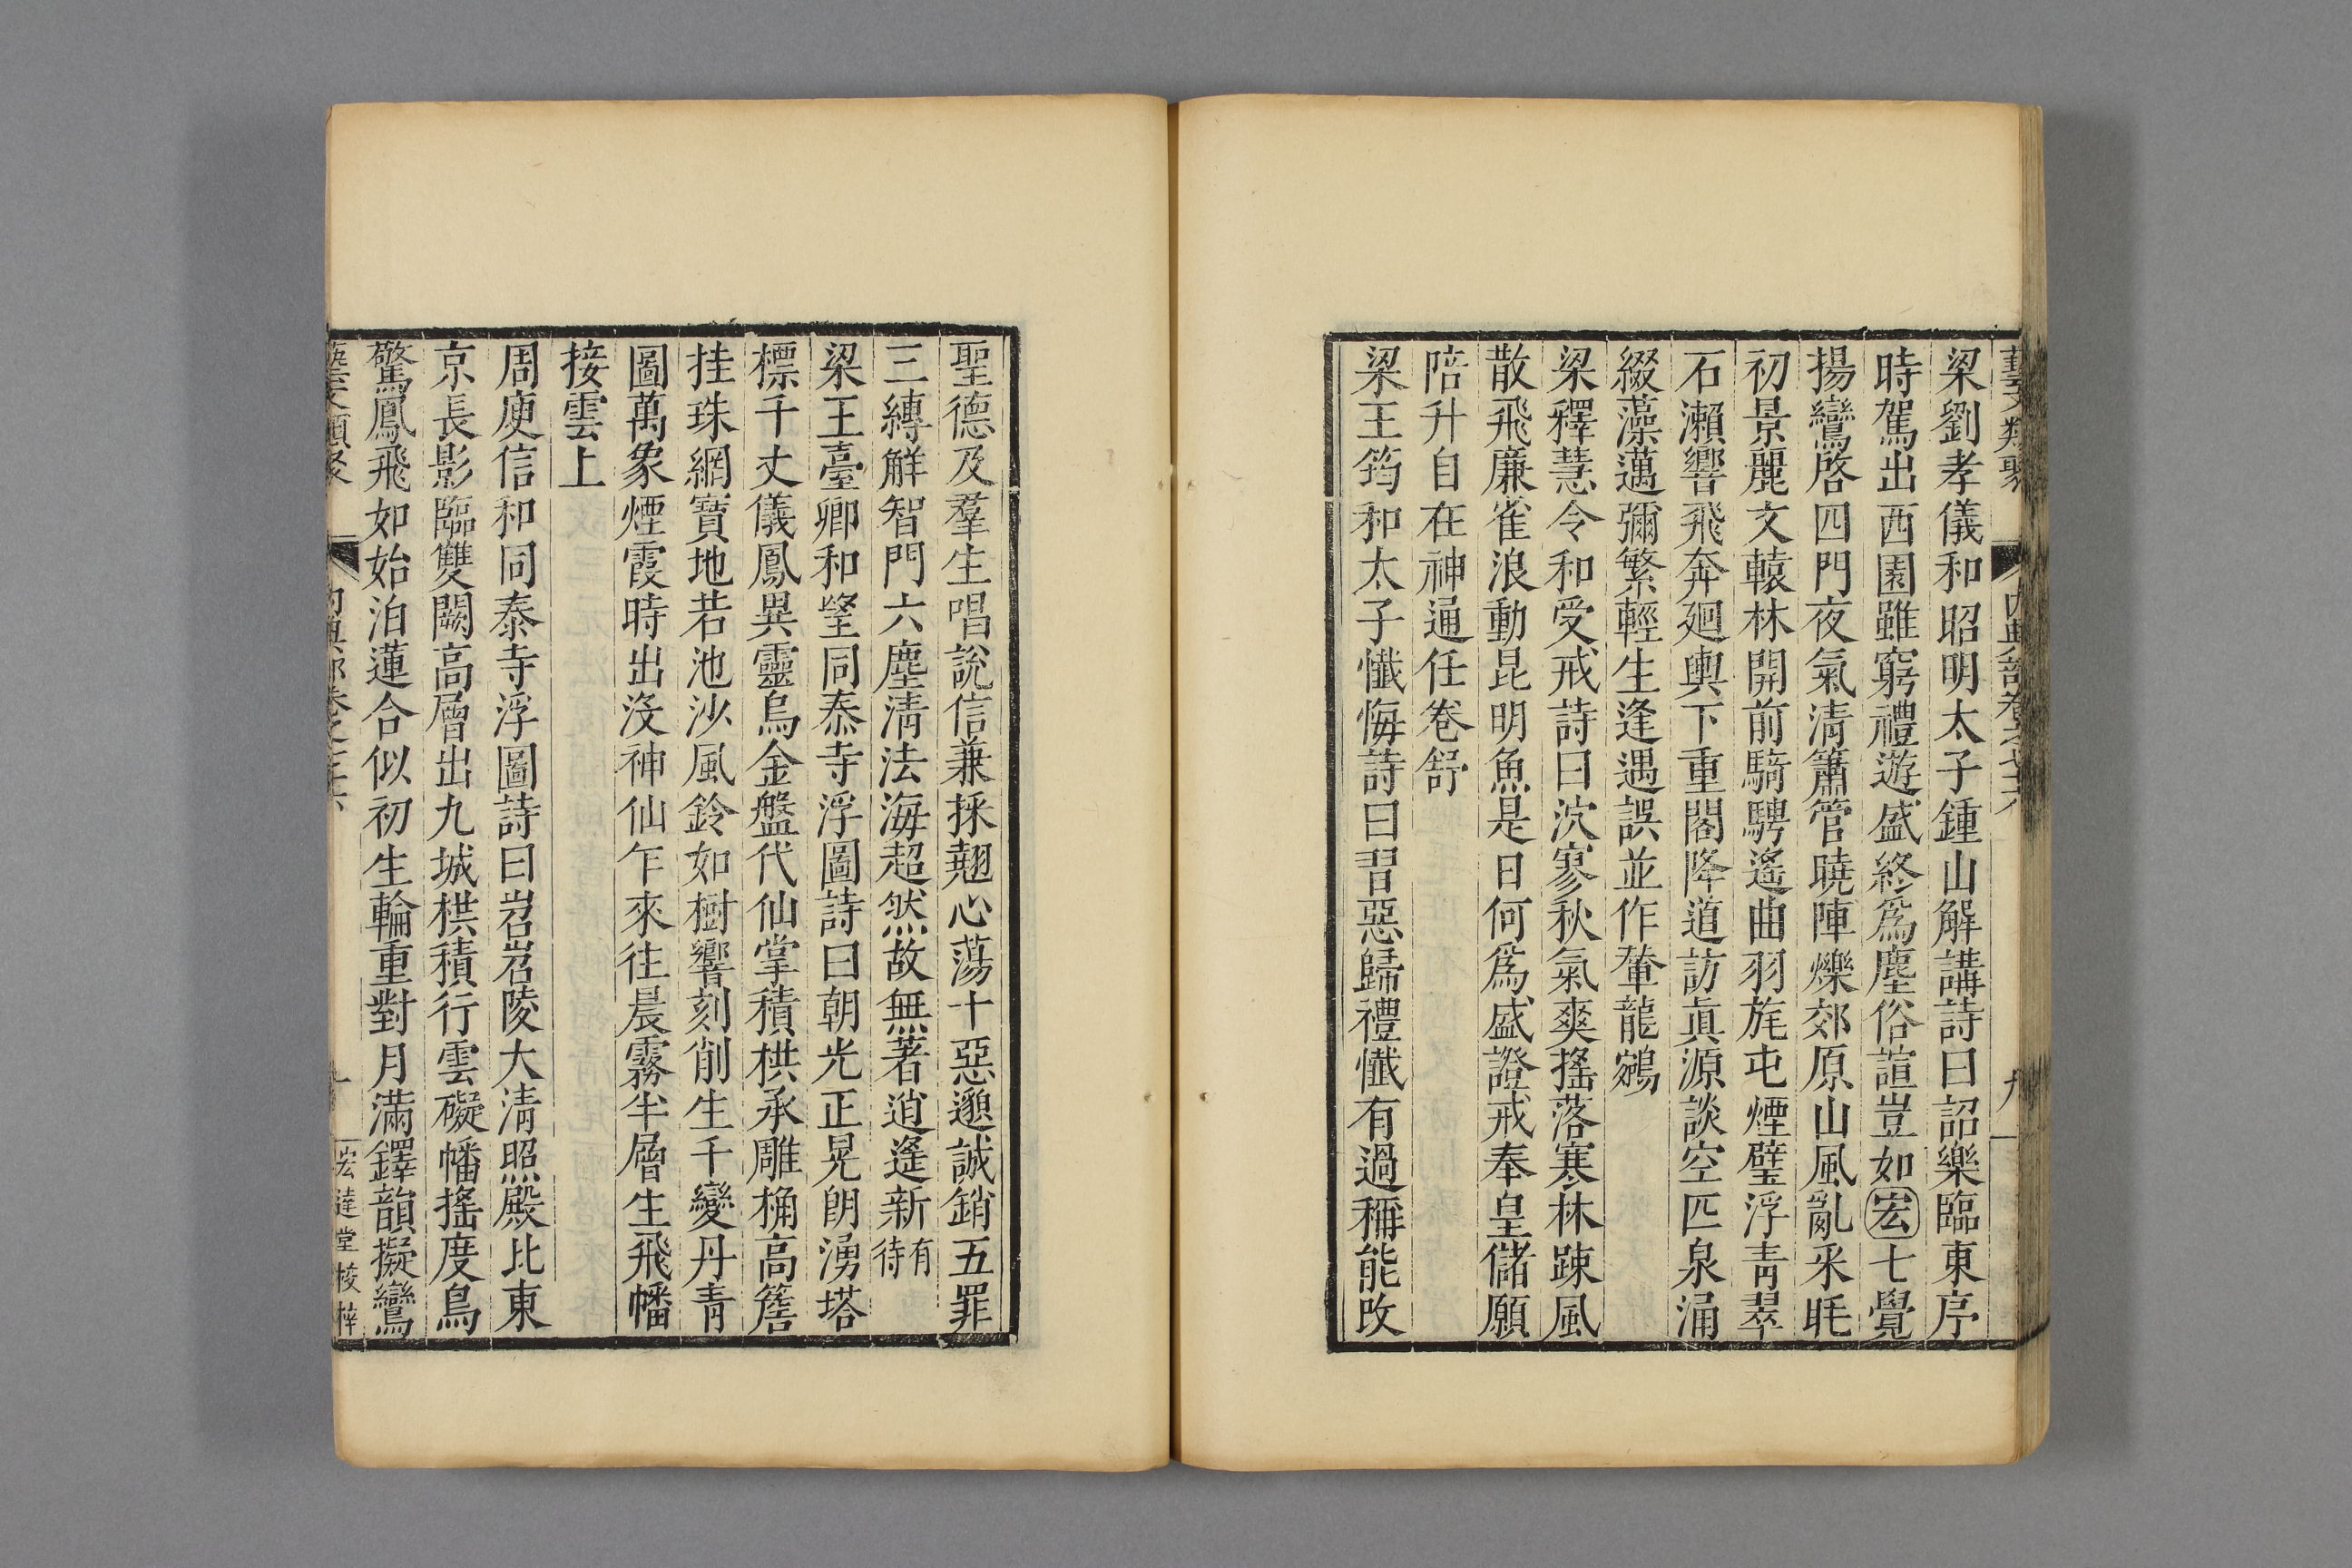 藝文類聚 內典部卷之七十六 九
梁劉孝儀和昭明太子鍾山解講詩曰詔樂臨東序
時駕出西園雖窮禮遊盛終爲塵俗諠豈如宏七覺
揚鸞啓四門夜氣清簫管曉陣爍郊原山風亂采眊
初景麗文轅林開前騎騁遙曲羽旄屯煙壁浮青翠
石瀨響飛奔廻輿下重閣降道訪眞源談空匹泉涌
綴藻邁彌繁輕生逢遇誤並作輦龍鵷
梁釋慧令和受戒詩曰泬寥秋氣爽搖落寒林踈風
散飛廉雀浪動昆明魚是日何爲盛證戒奉皇儲願
陪升自在神通任卷舒
梁王筠和太子懺悔詩曰習惡歸禮懺有過稱能改
聖德及羣生唱說信兼採翹心蕩十惡邀誠銷五罪
三縛解智門六塵清法海超然故無著逍遙新有待
梁王臺卿和望同泰寺浮圖詩曰朝光正晃朗湧塔
標千丈儀鳳異靈烏金盤代仙掌積栱承雕桷高簷
挂珠網寶地若池沙風鈴如樹響刻削生千變丹青
圖萬象煙霞時出沒神仙乍來往晨霧半層生飛幡
接雲上
周庾信和同泰寺浮圖詩曰岧岧陵大清照殿比東
京長影臨雙闕高層出九城栱積行雲礙幡搖度鳥
驚鳳飛如始泊蓮合似初生輪重對月滿鐸韻擬鸞
藝文類聚 內典部卷之七十六 宏達堂校梓